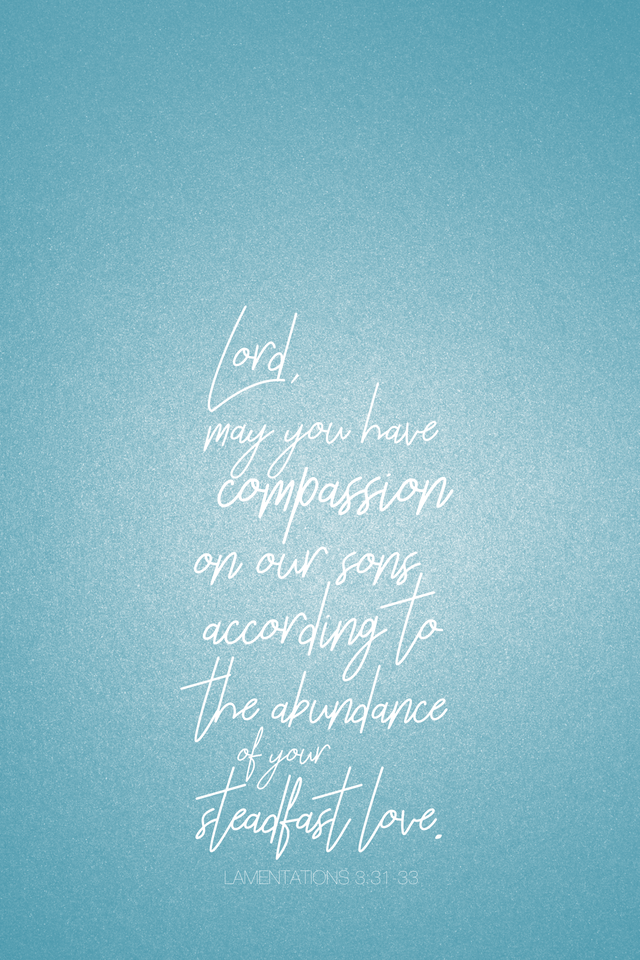 Lord,
may you have
compassion
on our sons
according to
the abundance
of your
steadfast love.
LAMENTATIONS 3:31-33